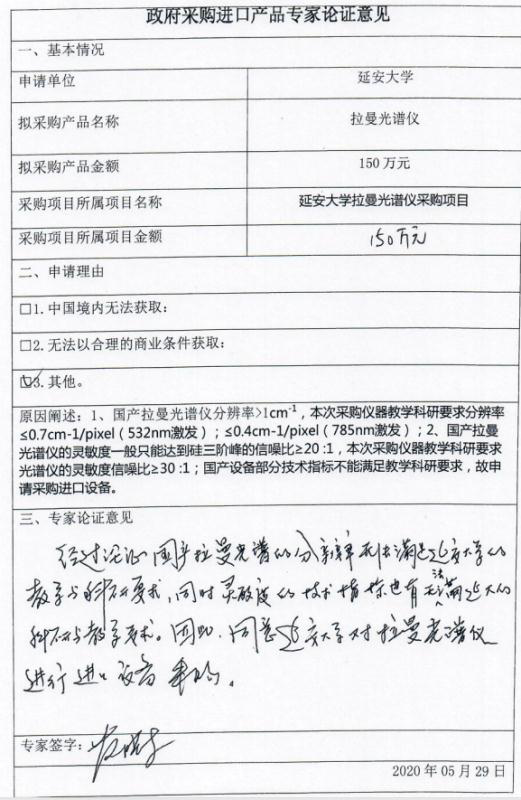 政府采购进口产品专家论证意见
一、基本情况
申请单位 延安大学
拟采购产品名称 拉曼光谱仪
拟采购产品金额 150万元
采购项目所属项目名称 延安大学拉曼光谱仪采购项目
采购项目所属项目金额 150万元
二、申请理由
□1.中国境内无法获取：
□2.无法以合理的商业条件获取：
☑3.其他。
原因阐述：1、国产拉曼光谱仪分辨率>1cm⁻¹，本次采购仪器教学科研要求分辨率
≤0.7cm-1/pixel（532nm激发）；≤0.4cm-1/pixel（785nm激发）；2、国产拉曼
光谱仪的灵敏度一般只能达到硅三阶峰的信噪比≥20:1，本次采购仪器教学科研要求
光谱仪的灵敏度信噪比≥30:1；国产设备部分技术指标不能满足教学科研要求，故申
请采购进口设备。
三、专家论证意见
经过论证国产拉曼光谱的分辨率无法满足延安大学的
教学与科研要求，同时灵敏度的技术指标也有无法满足延大的
科研与教学要求。因此，同意延安大学对拉曼光谱仪
进行进口设备采购。
专家签字：
2020年05月29日